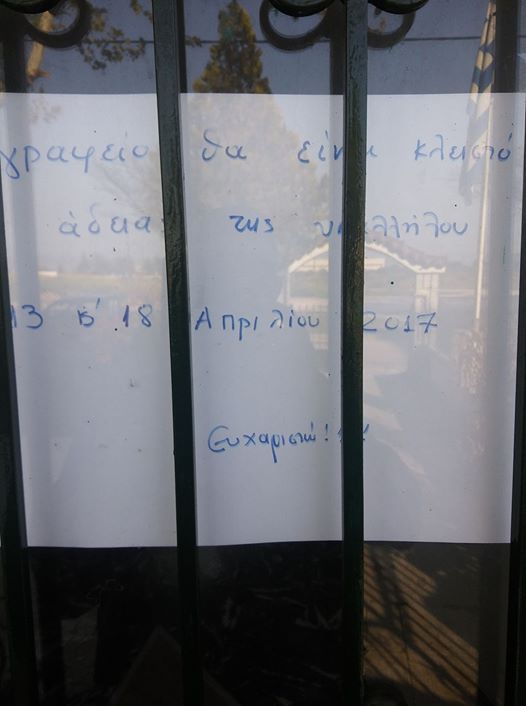 γραφείο θα είναι κλειστό
άδεια της υπαλλήλου
13 & 18 Απριλίου 2017
Ευχαριστώ!!!